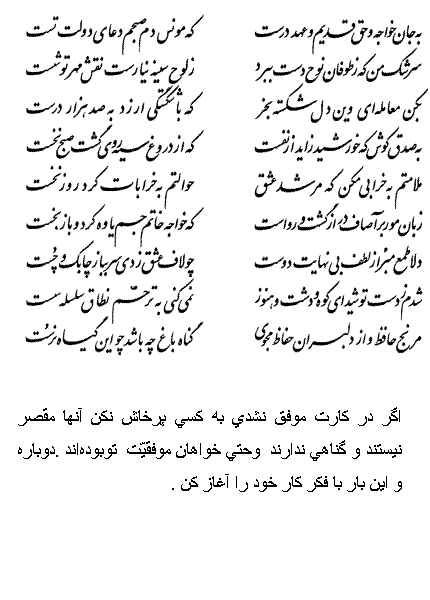 به جان خواجه و حق قدیم و عهد درست که مونس دم صبحم دعای دولت تست
سرشک من که ز طوفان نوح دست ببرد ز لوح سینه نیارست نقش مهر تو شست
بکن معامله‌ای وین دل شکسته بخر که با شکستگی ارزد به صد هزار درست
به صدق کوش که خورشید زاید از نفست که از دروغ سیه روی گشت صبح نخست
ملامتم به خرابی مکن که مرشد عشق حوالتم به خرابات کرد روز نخست
زبان مور بر آصف دراز گشت و رواست که خواجه خاتم جم یاوه کرد و باز نجست
دلا طمع مبر از لطف بی نهایت دوست چو لاف عشق زدی سر بباز چابک و چست
شدم ز دست تو شیدای کوه و دشت و هنوز نمی‌کنی به ترحم نطاق سلسله سست
مرنج حافظ و از دلبران حفاظ مجوی گناه باغ چه باشد چو این گیاه نرست
اگر در کارت موفق نشدي به کسي پرخاش نکن آنها مقصر
نیستند و گناهي ندارند وحتي خواهان موفقیّت توبوده‌اند .دوباره
و این بار با فکر کار خود را آغاز کن .